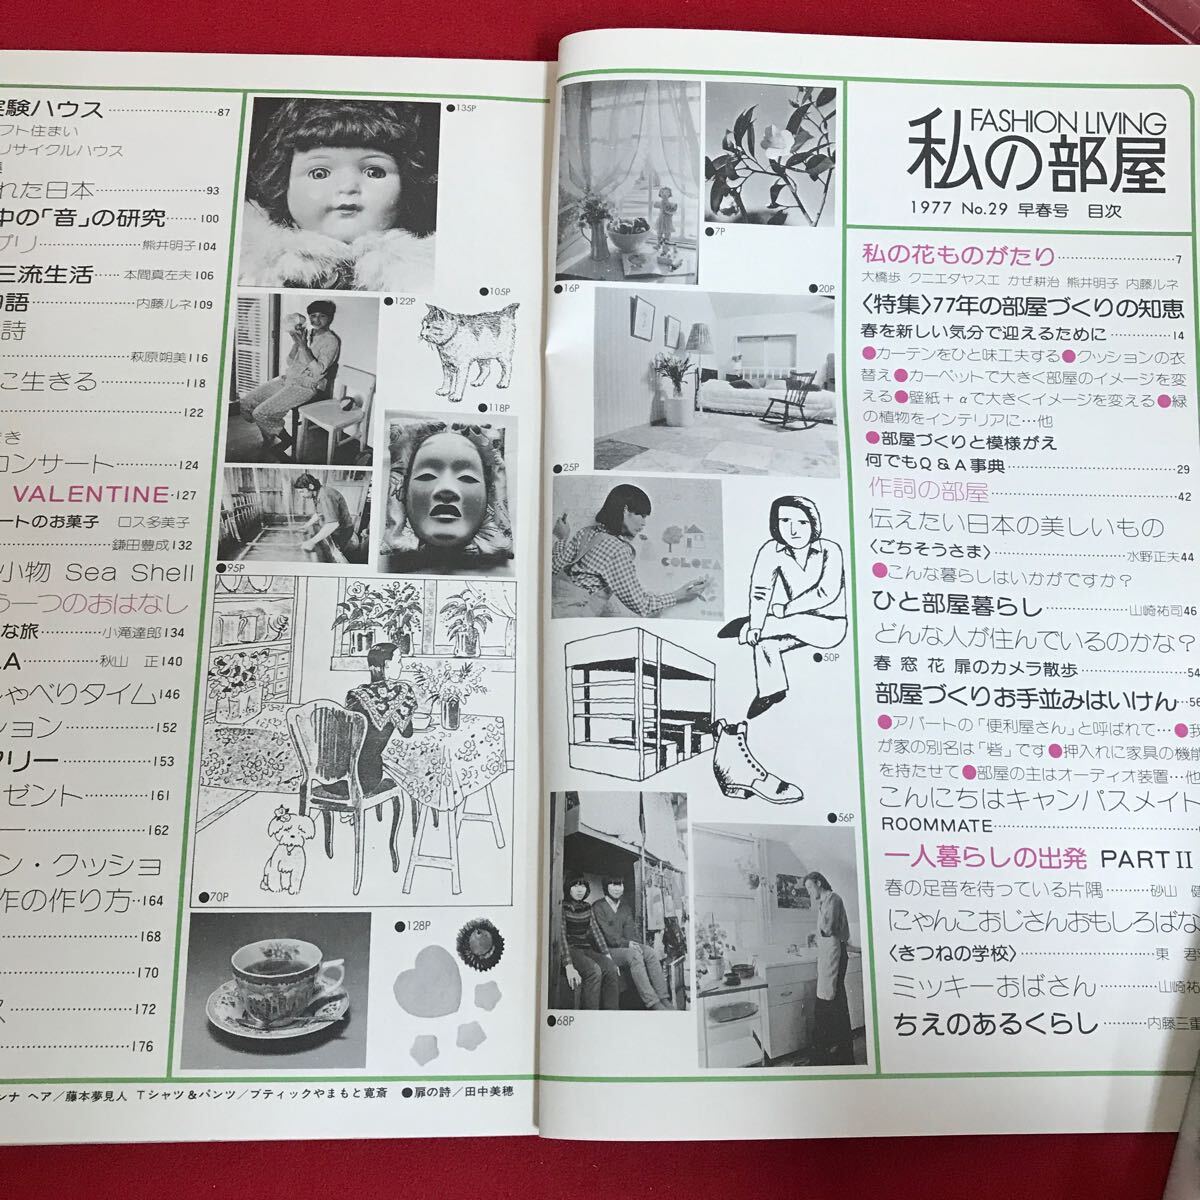 実験ハウス……87
フト住まい
リサイクルハウス
れた日本……93
中の「音」の研究……100
プリ……熊井明子104
三流生活……本間真左夫106
物語……内藤ルネ109
詩
萩原朔美116
に生きる……118
122
き
コンサート……124
VALENTINE……127
ートのお菓子 ロス多美子
鎌田豊成132
小物 Sea Shell
う一つのおはなし
な旅……小滝達郎134
A……秋山 正140
ゃべりタイム146
ション……152
マリー……153
ゼント……161
ー……162
ン・クッショ
作の作り方…164
168
170
ス……172
176
●135P
●122P
●105P
●118P
●95P
●70P
●128P
ンナ ヘア/藤本夢見人 Tシャツ&パンツ/ブティックやまもと寛斎 ●扉の詩/田中美穂
●7P
●16P
●20P
●25P
COLOKA
●50P
●56P
●68P
FASHION LIVING
私の部屋
1977 No.29 早春号 目次
私の花ものがたり……7
大橋歩 クニエダヤスエ かぜ耕治 熊井明子 内藤ルネ
〈特集〉77年の部屋づくりの知恵
春を新しい気分で迎えるために……14
●カーテンをひと味工夫する●クッションの衣
替え●カーペットで大きく部屋のイメージを変
える●壁紙+αで大きくイメージを変える●緑
の植物をインテリアに…他
●部屋づくりと模様がえ
何でもQ&A事典……29
作詞の部屋……42
伝えたい日本の美しいもの
〈ごちそうさま〉……水野正夫44
●こんな暮らしはいかがですか?
ひと部屋暮らし……山崎祐司46
どんな人が住んでいるのかな?
春 窓 花 扉のカメラ散歩……54
部屋づくりお手並みはいけん…56
●アパートの「便利屋さん」と呼ばれて…●我
が家の別名は「砦」です●押入れに家具の機能
を持たせて●部屋の主はオーディオ装置…他
こんにちはキャンパスメイト
ROOMMATE……
一人暮らしの出発 PART II
春の足音を待っている片隅……砂山 健
にゃんこおじさんおもしろばな
〈きつねの学校〉……東 君
ミッキーおばさん……山崎祐
ちえのあるくらし……内藤三重